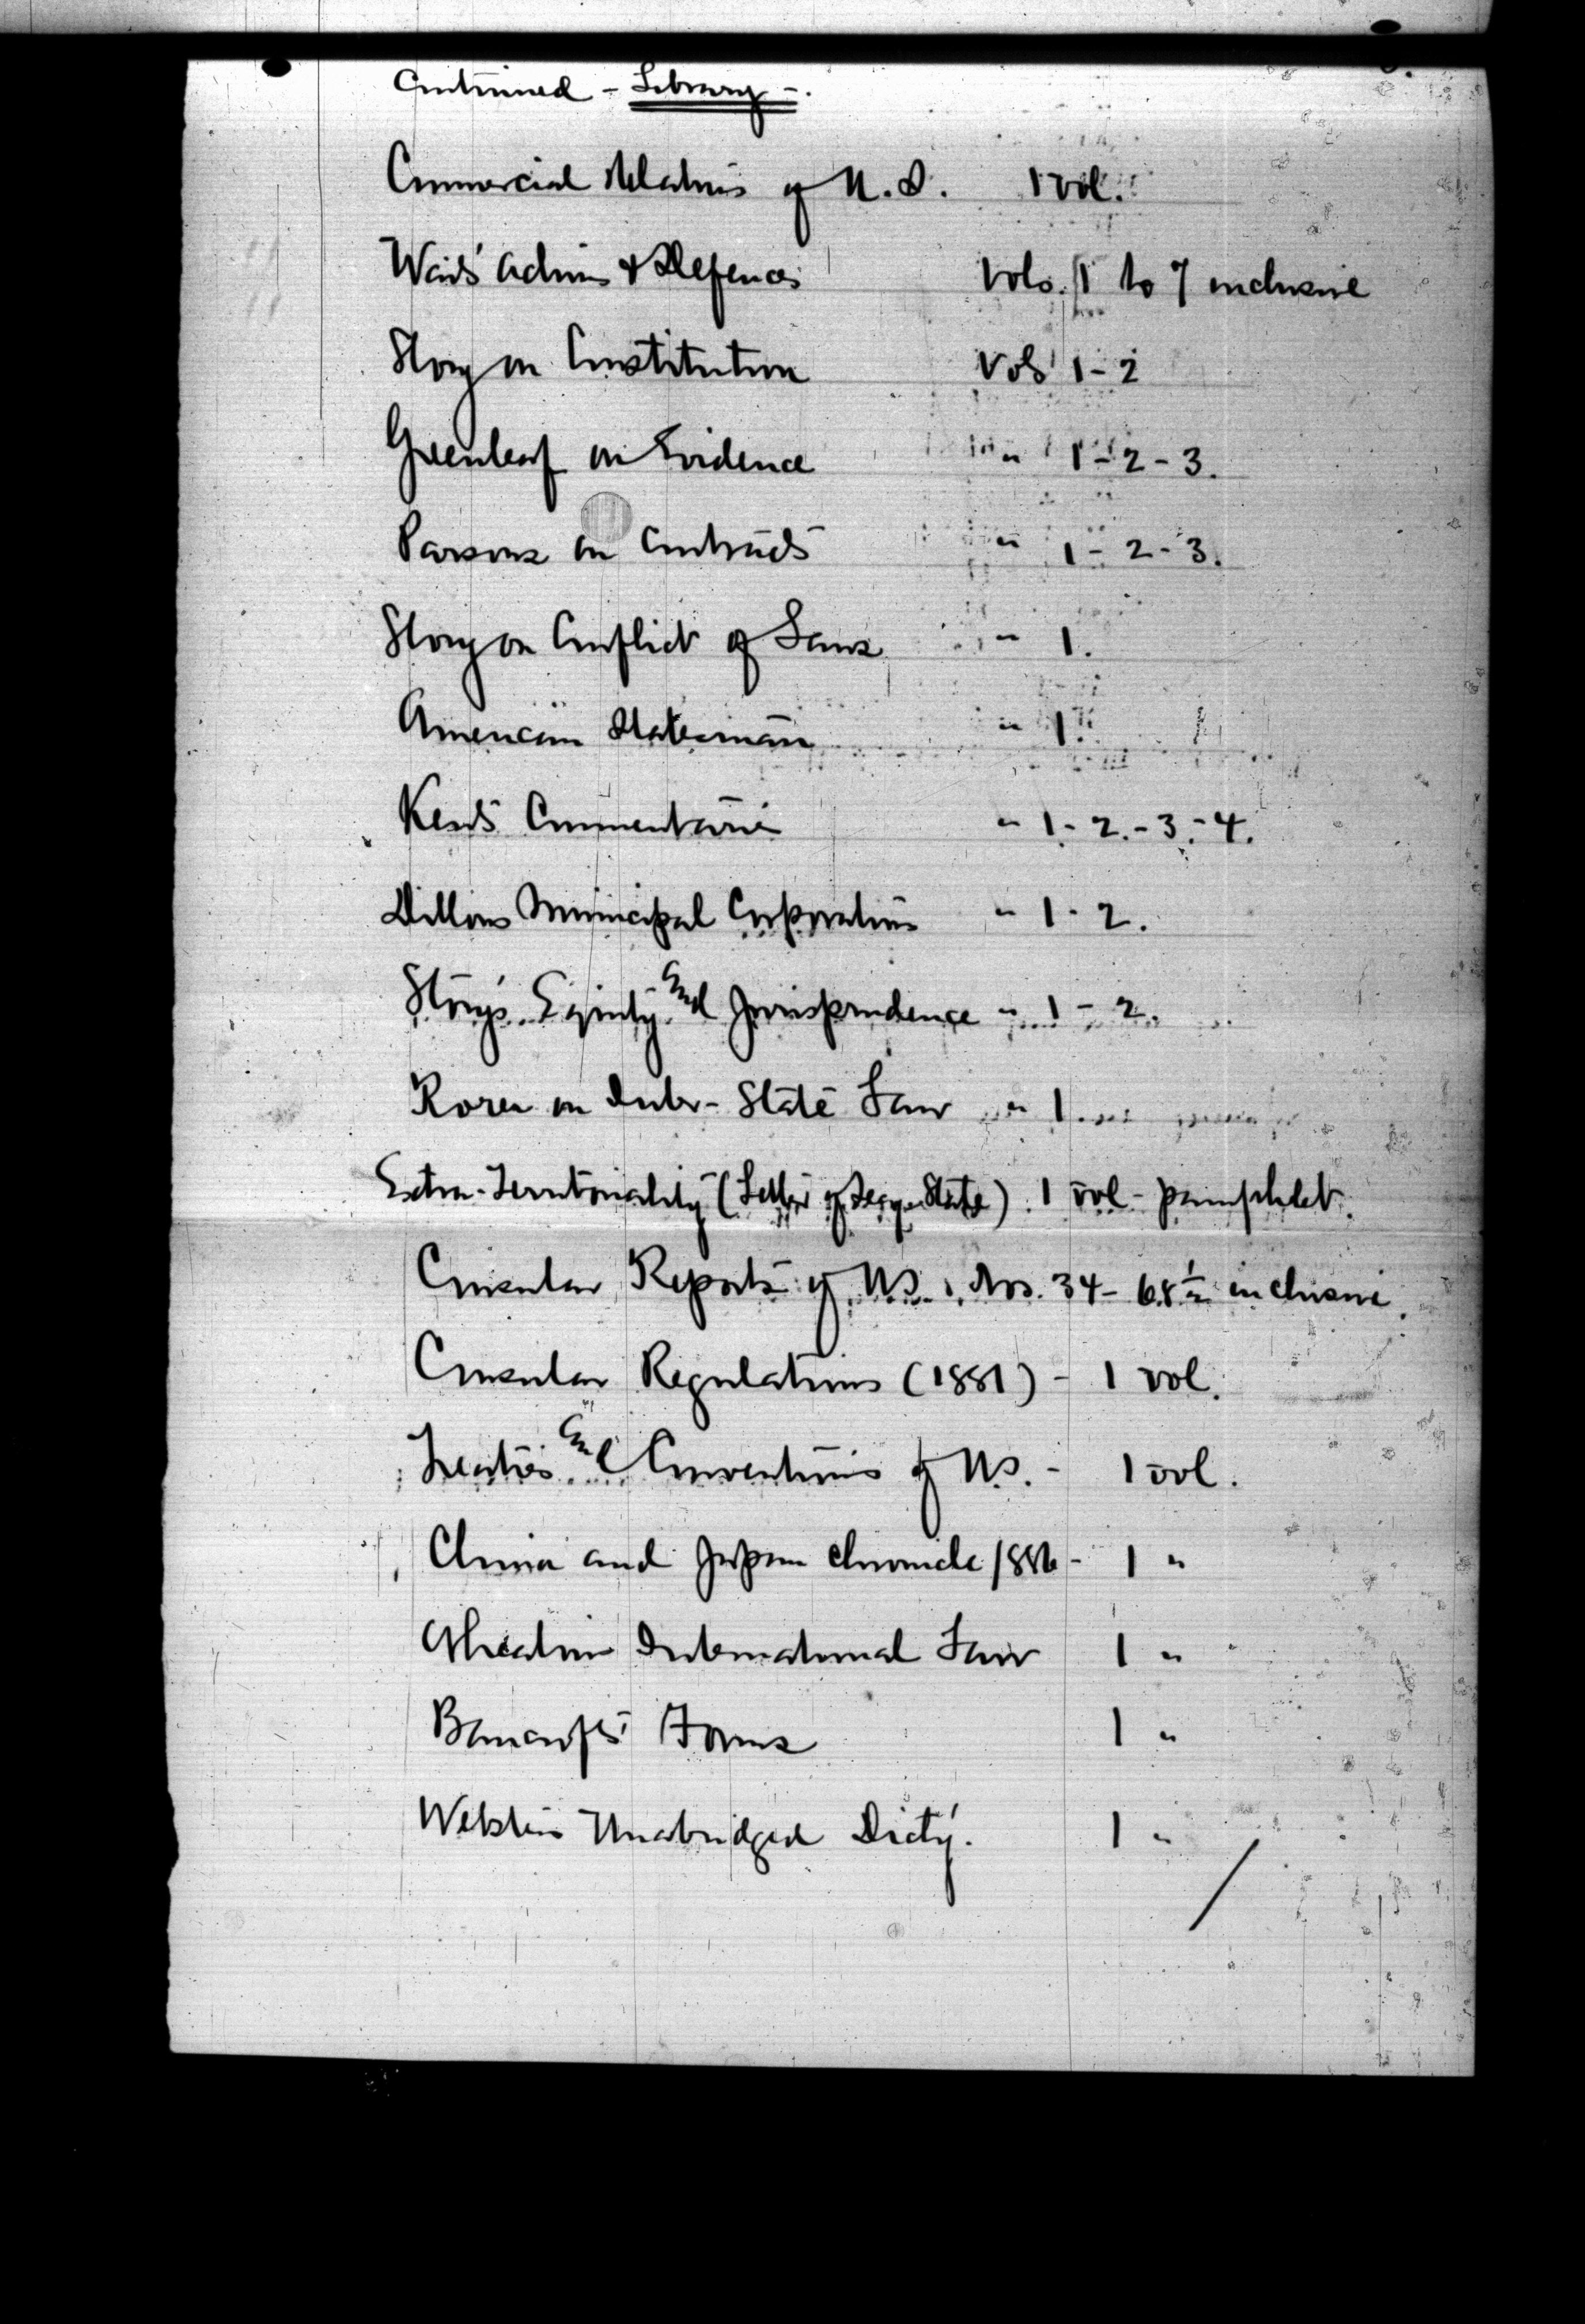 Continued - Library -.
Commercial Relations of U.S. 1 vol.
Waits' Actions & Defences Vols. 1 to 7 inclusive
Story on Constitution Vols 1-2
Greenleaf on Evidence " 1-2-3.
Parsons on Contracts " 1-2-3.
Story on Conflict of Laws " 1.
American Statesman " 1.
Kent's Commentaries " 1-2-3-4.
Dillons Municipal Corporations " 1-2.
Story's Equity and Jurisprudence " 1-2.
Rorer on Inter-State Law " 1.
Extra-Territoriality (Letter of Secy State). 1 vol - pamphlet.
Consular Reports of U.S., Nos. 34-68½ inclusive.
Consular Regulations (1881) - 1 vol.
Treaties and Conventions of U.S. - 1 vol.
China and Japan Chronicle 1886 - 1 "
Wheatons International Law 1 "
Bancroft's Forms 1 "
Websters Unabridged Dict'y. 1 "